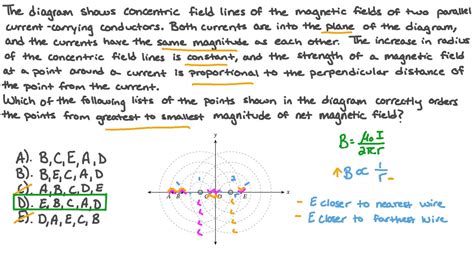 The diagram shows concentric field lines of the magnetic fields of two parallel
current-carrying conductors. Both currents are into the plane of the diagram,
and the currents have the same magnitude as each other. The increase in radius
of the concentric field lines is constant, and the strength of a magnetic field
at a point around a current is proportional to the perpendicular distance of
the point from the current.
Which of the following lists of the points shown in the diagram correctly orders
the points from greatest to smallest magnitude of net magnetic field?
A). B, C, E, A, D
B). B, E, C, A, D
C). A, B, C, D, E
D). E, B, C, A, D
E). D, A, E, C, B
y
1 2
A B C D E x
B = μ₀I / 2πr
↑B ∝ 1/r
- E closer to nearest wire
- E closer to farthest wire